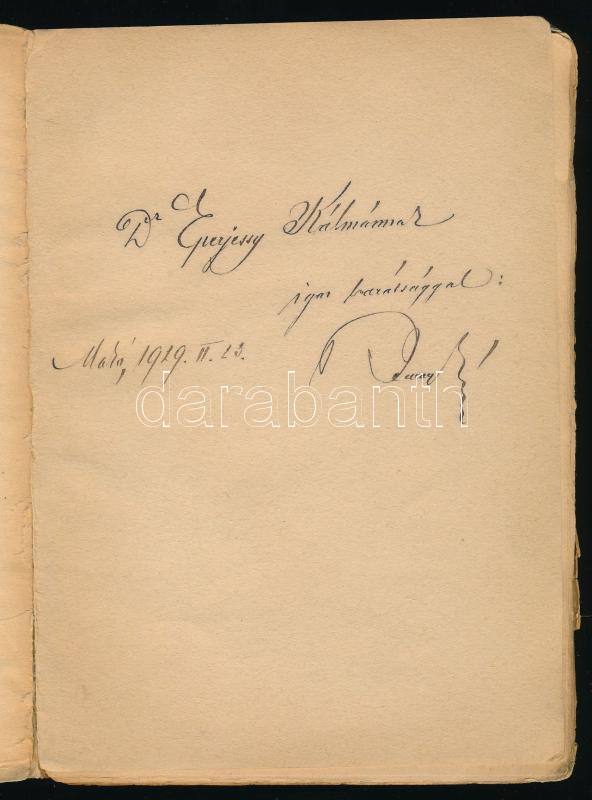 Dr Eperjessy Kálmánnak
igaz barátsággal:
Makó, 1929. II. 23.
darabanth